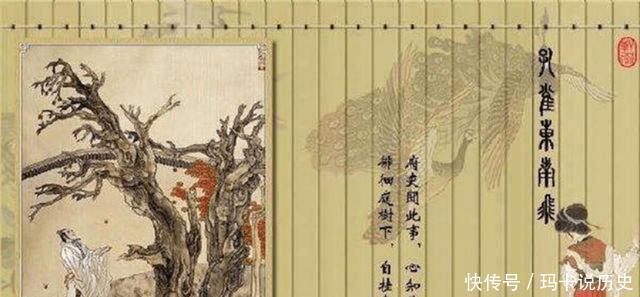 孔雀東南飛
府吏聞此事，心知
徘徊庭樹下，自挂
快传号 / 玛卡说历史